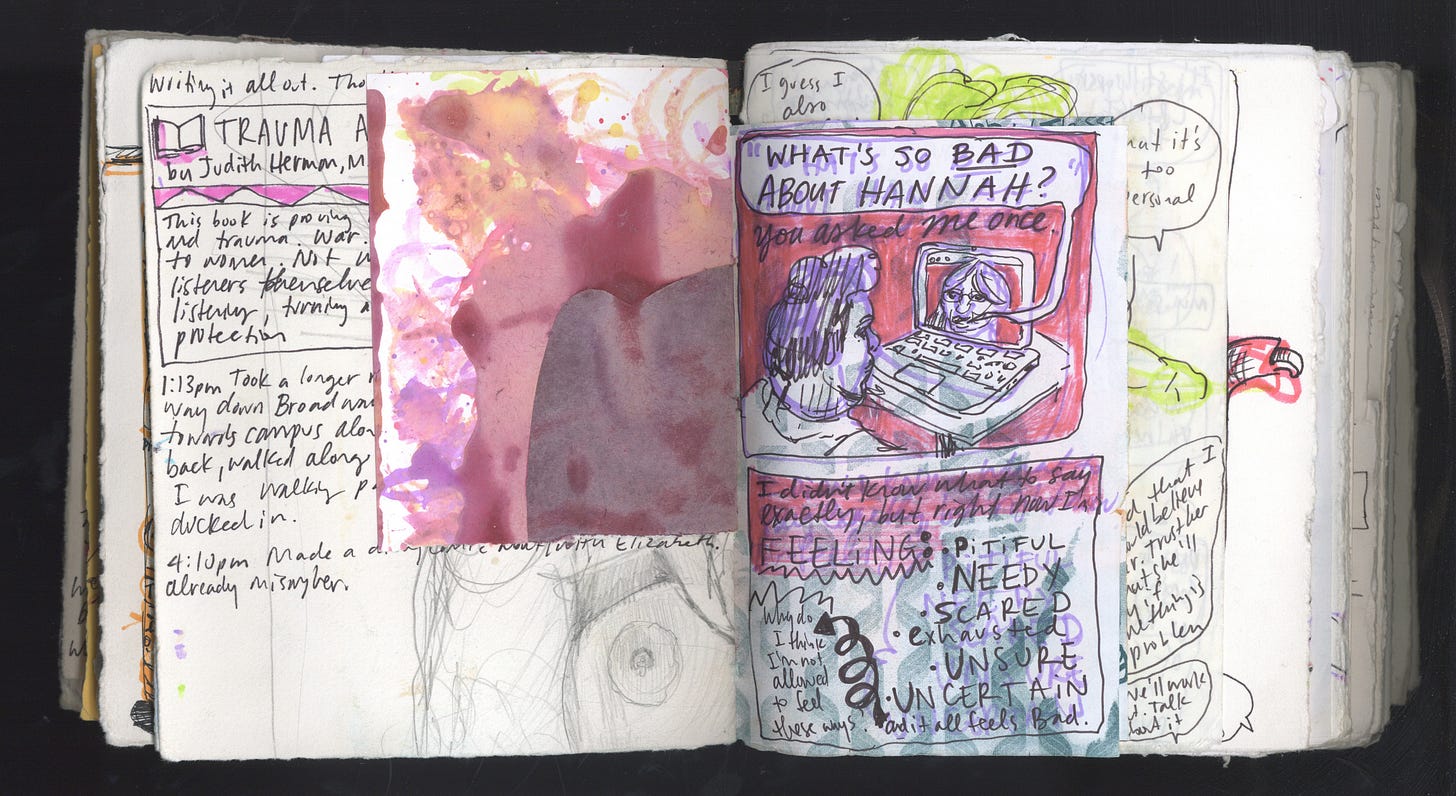 Writing it all out. Tho
TRAUMA A
by Judith Herman, M.
This book is proving
and trauma. War.
to women. Not
listeners themselve
listening, turning a
protection
1:13pm Took a longer
way down Broadway
towards campus alon
back, walked along
I was walking
ducked in.
4:10pm Made a with Elizabeth.
already miss her.
I guess I
also
"WHAT'S SO BAD
ABOUT HANNAH?"
you asked me once.
I didn't know what to say
exactly, but right now I'm
FEELING:
• PITIFUL
• NEEDY
• SCARED
• exhausted
• UNSURE
• UNCERTAIN
and it all feels Bad.
Why do
I think
I'm not
allowed
to feel
these ways?
hat it's
too
personal
that I
believe
trust her
she'll
if
thing's
problem
we'll work
Talk
about it